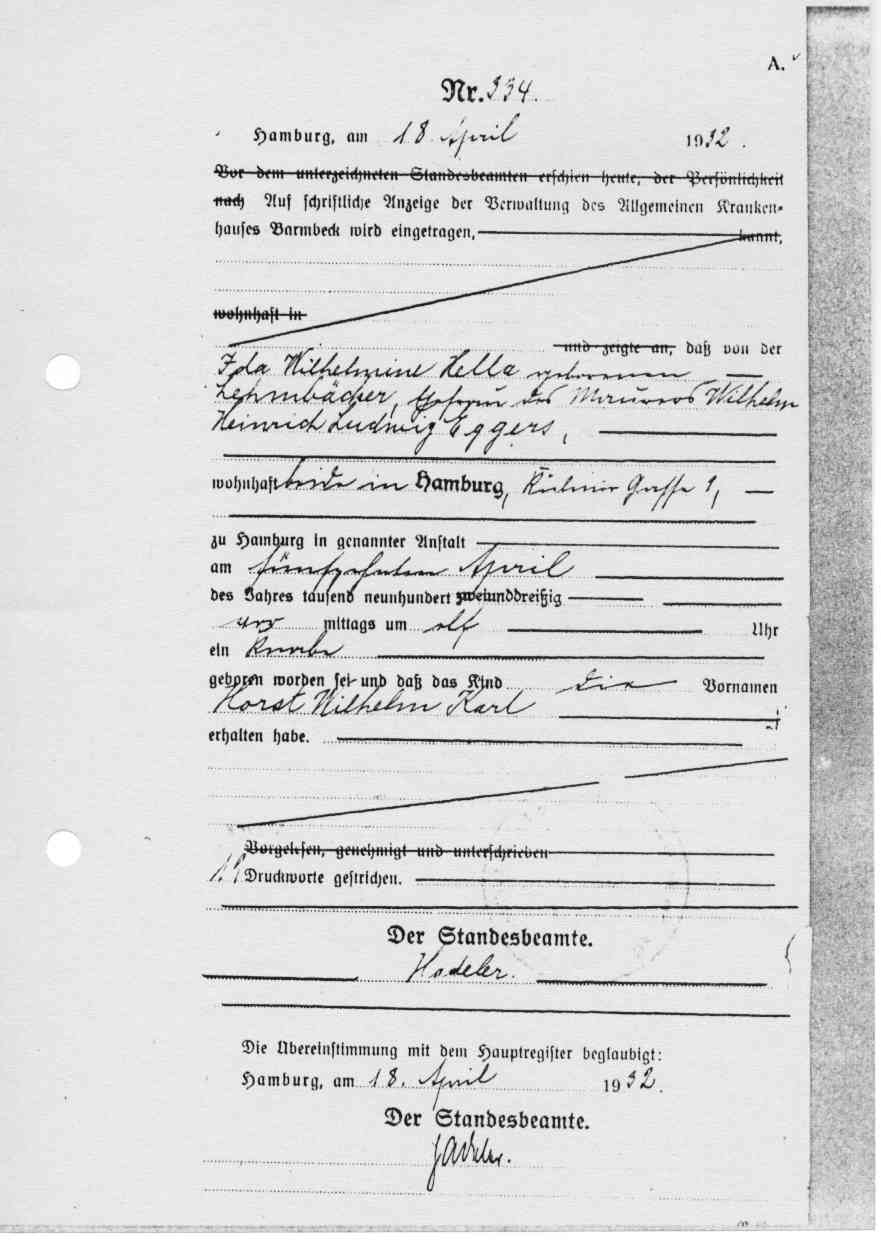 A.
Nr. 334.
Hamburg, am 18 April 1932.
Vor dem unterzeichneten Standesbeamten erschien heute, der Persönlichkeit
nach Auf schriftliche Anzeige der Verwaltung des Allgemeinen Kranken-
hauses Barmbeck wird eingetragen, kannt,
wohnhaft in
und zeigte an, daß von der
Ida Wilhelmine Hella geborenen
Lehmbäcker, Ehefrau des Maurers Wilhelm
Heinrich Ludwig Eggers,
wohnhaft beide in Hamburg, 1,
zu Hamburg in genannter Anstalt
am fünfzehnten April
des Jahres tausend neunhundert zweiunddreißig
vor mittags um elf Uhr
ein Knabe
geboren worden sei und daß das Kind die Vornamen
Horst Wilhelm Karl
erhalten habe.
Vorgelesen, genehmigt und unterschrieben
Druckworte gestrichen.
Der Standesbeamte.
Hadeler.
Die Übereinstimmung mit dem Hauptregister beglaubigt:
Hamburg, am 18. April 1932.
Der Standesbeamte.
Hadeler.